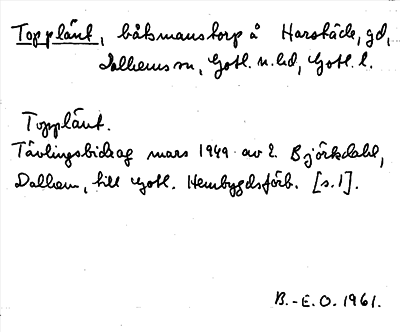 Topplänt, båtsmanstorp å Harstäde, gd,
Dalhems sn, Gotl. n. hd, Gotl. l.
Topplänt.
Tävlingsbidrag mars 1949 av E. Björkdahl,
Dalhem, till Gotl. Hembygdsförb. [s. 1].
B.-E.O. 1961.